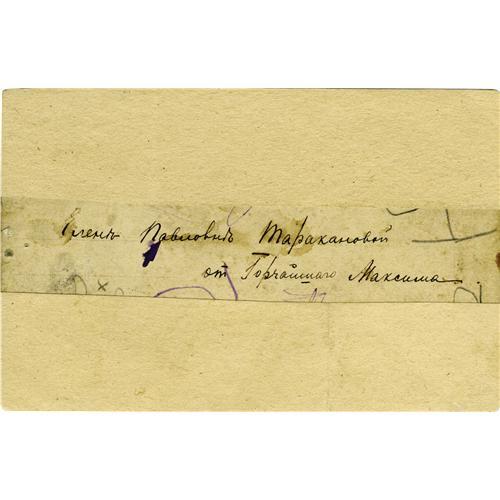 Еленѣ Павловнѣ Таракановой
от Горчайшаго Максима